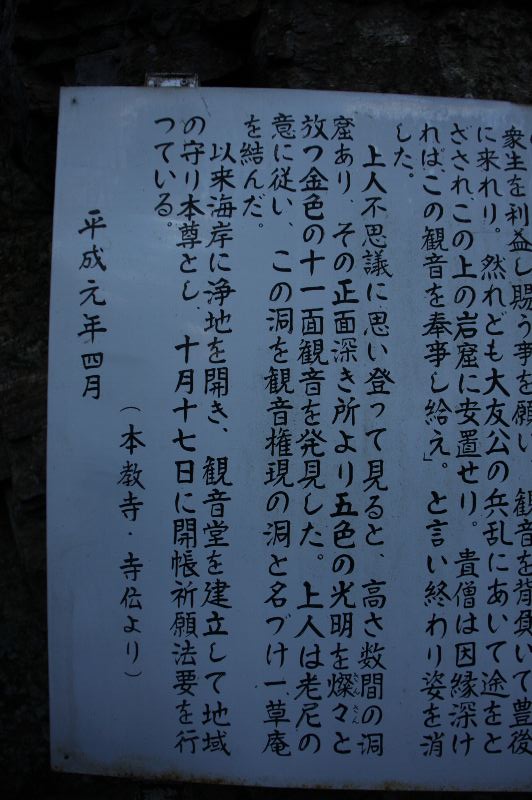 衆生を利益し賜う事を願い、観音を背負いて豊後
に来れり。然れども大友公の兵乱にあいて途をと
ざされ、この上の岩窟に安置せり。貴僧は因縁深け
れば、この観音を奉事し給え」。と言い終わり姿を消
した。
上人不思議に思い登って見ると、高さ数間の洞
窟あり、その正面深き所より五色の光明を燦々と
さんさん
放つ金色の十一面観音を発見した。上人は老尼の
意に従い、この洞を観音権現の洞と名づけ一草庵
を結んだ。
以来海岸に浄地を開き、観音堂を建立して地域
の守り本尊とし、十月十七日に開帳祈願法要を行
つている。
（本教寺・寺伝より）
平成元年四月